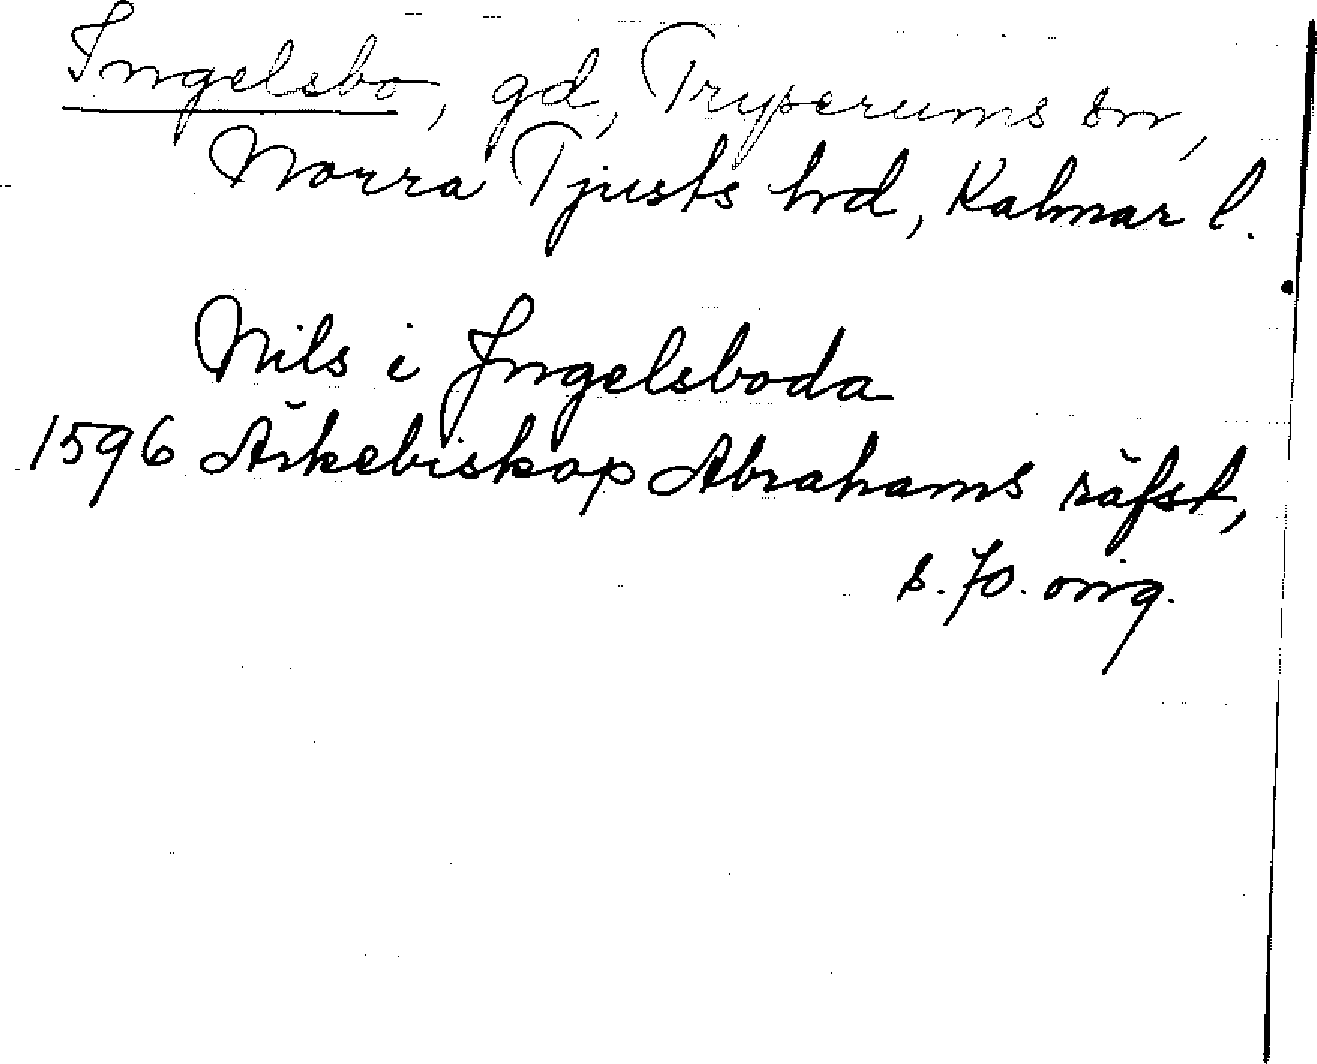 Ingelsbo, gd, Tryserums sn,
Norra Tjusts hrd, Kalmar l.
Nils i Jngelsboda
1596 Ärkebiskop Abrahams räfst,
s. 70. orig.